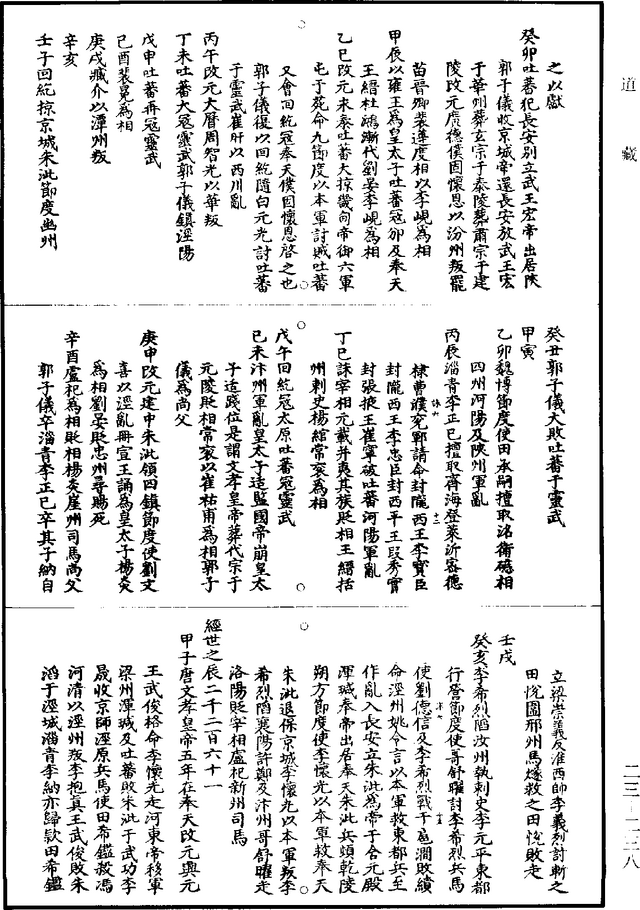 道藏
之以獻
癸卯吐蕃犯長安别立武王宏帝出居陝
郭子儀收京城帝還長安放武王宏
于華州葬玄宗于泰陵葬肅宗于建
陵改元廣德僕固懷恩以汾州叛罷
苗晉卿裴遵度相以李峴爲相
甲辰以雍王爲皇太子吐蕃冦邠及奉天
王縉杜鴻漸代劉晏李峴爲相
乙巳改元永泰吐蕃大掠畿向帝御六軍
屯于苑命九節度以本軍討賊吐蕃
又會囘紇冦奉天僕固懷恩啓之也
郭子儀復以囘紇隨白元光討吐蕃
于靈武崔旰以西川亂
丙午改元大曆周智光以華叛
丁未吐蕃大冦靈武郭子儀鎮涇陽
戊申吐蕃再冦靈武
己酉裴冕爲相
庚戌臧介以潭州叛
辛亥
壬子囘紇掠京城朱泚節度幽州
癸丑郭子儀大敗吐蕃于靈武
甲寅
乙卯魏博節度使田承嗣擅取洺衛磁相
四州河陽及陝州軍亂
丙辰淄青李正己擅取齊海登萊沂密德
棣曹濮兖鄆請命封隴西王李寶臣
封隴西王李忠臣封西平王段秀實
封張掖王崔寧破吐蕃河陽軍亂
丁巳誅宰相元載并夷其族貶相王縉括
州刺史楊綰常衮爲相
戊午囘紇冦太原吐蕃冦靈武
己未汴州軍亂皇太子适監國帝崩皇太
子适踐位是謂文孝皇帝葬代宗于
元陵貶相常衮以崔祐甫爲相郭子
儀爲尚父
庚申改元建中朱泚領四鎮節度使劉文
喜以涇亂冊宣王誦爲皇太子楊炎
爲相劉晏貶忠州尋賜死
辛酉盧杞爲相貶相楊炎崖州司馬尚父
郭子儀卒淄青李正己卒其子納自
立梁崇義反淮西帥李義烈討斬之
田悅圍邢州馬燧救之田悅敗走
壬戌
癸亥李希烈陷汝州執刺史李元平東都
行營節度使哥舒曜討李希烈兵馬
使劉德信及李希烈戰于扈澗敗績
命涇州姚令言以本軍救東都兵至
作亂入長安立朱泚爲帝于含元殿
渾瑊奉帝出居奉天朱泚兵頓乾陵
朔方節度使李懷光以本軍救奉天
朱泚退保京城李懷光以本軍叛李
希烈陷襄陽許鄭及汴州哥舒曜走
洛陽貶宰相盧杞新州司馬
經世之辰二千二百六十一
甲子唐文孝皇帝五年在奉天改元興元
王武俊格命李懷光走河東帝移軍
梁州渾瑊及吐蕃敗朱泚于武功李
晟收京師涇原兵馬使田希鑑殺馮
河清以涇州叛李抱真王武俊敗朱
滔于涇城淄青李納亦歸欵田希鑑
二三-二三八